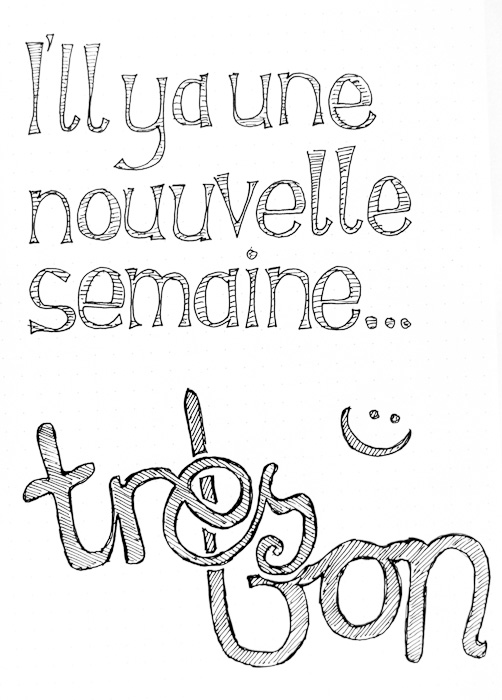 I'll ya une
nouuvelle
semaine...
très
bon